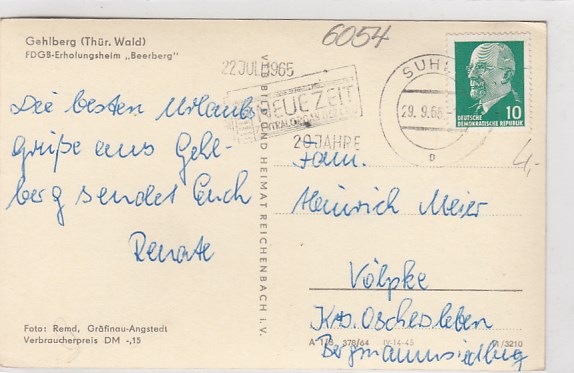 Gehlberg (Thür. Wald)
FDGB-Erholungsheim „Beerberg"
6054
22 JUL 1965
NEUE ZEIT
20 JAHRE
SUHL
29. 9. 65
DEUTSCHE
DEMOKRATISCHE REPUBLIK
10
4,-
Die besten Urlaubs
grüße aus Gehl-
berg sendet Euch
Renate
VERB BILD UND HEIMAT REICHENBACH I. V.
Fam.
Heinrich Meier
Völpke
Krs. Oschersleben
Bergmannsiedlung
Foto: Remd, Gräfinau-Angstedt
Verbraucherpreis DM -,15
A 1/B 378/64 IV-14-45 /3210